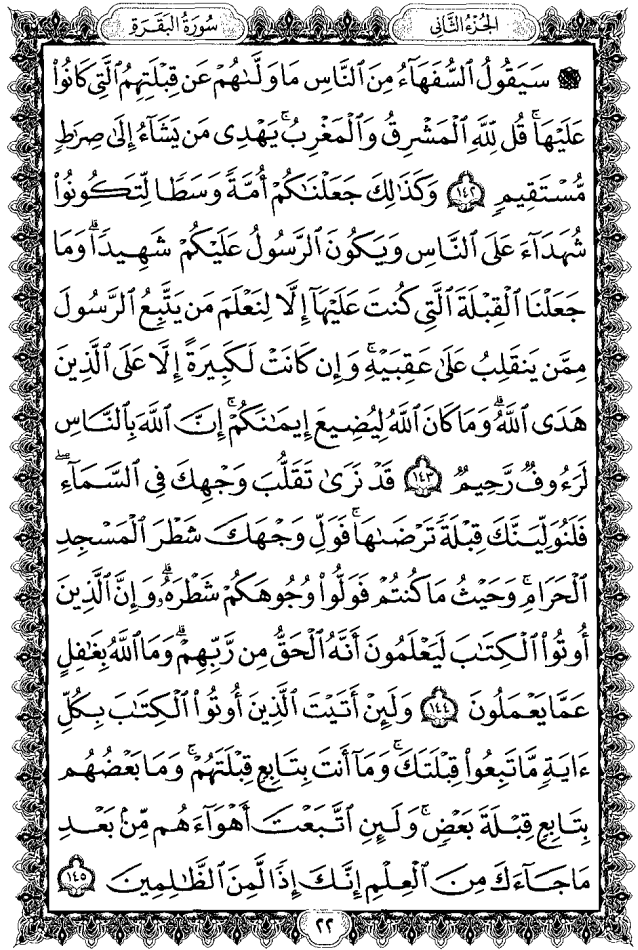 سُورَةُ البَقَرَةِ
الجُزءُ الثَّانِي
۞ سَيَقُولُ ٱلسُّفَهَآءُ مِنَ ٱلنَّاسِ مَا وَلَّىٰهُمْ عَن قِبْلَتِهِمُ ٱلَّتِى كَانُوا۟
عَلَيْهَا ۚ قُل لِّلَّهِ ٱلْمَشْرِقُ وَٱلْمَغْرِبُ ۚ يَهْدِى مَن يَشَآءُ إِلَىٰ صِرَٰطٍ
مُّسْتَقِيمٍ ١٤٢ وَكَذَٰلِكَ جَعَلْنَٰكُمْ أُمَّةً وَسَطًا لِّتَكُونُوا۟
شُهَدَآءَ عَلَى ٱلنَّاسِ وَيَكُونَ ٱلرَّسُولُ عَلَيْكُمْ شَهِيدًا ۗ وَمَا
جَعَلْنَا ٱلْقِبْلَةَ ٱلَّتِى كُنتَ عَلَيْهَآ إِلَّا لِنَعْلَمَ مَن يَتَّبِعُ ٱلرَّسُولَ
مِمَّن يَنقَلِبُ عَلَىٰ عَقِبَيْهِ ۚ وَإِن كَانَتْ لَكَبِيرَةً إِلَّا عَلَى ٱلَّذِينَ
هَدَى ٱللَّهُ ۗ وَمَا كَانَ ٱللَّهُ لِيُضِيعَ إِيمَٰنَكُمْ ۚ إِنَّ ٱللَّهَ بِٱلنَّاسِ
لَرَءُوفٌ رَّحِيمٌ ١٤٣ قَدْ نَرَىٰ تَقَلُّبَ وَجْهِكَ فِى ٱلسَّمَآءِ ۖ
فَلَنُوَلِّيَنَّكَ قِبْلَةً تَرْضَىٰهَا ۚ فَوَلِّ وَجْهَكَ شَطْرَ ٱلْمَسْجِدِ
ٱلْحَرَامِ ۚ وَحَيْثُ مَا كُنتُمْ فَوَلُّوا۟ وُجُوهَكُمْ شَطْرَهُۥ ۗ وَإِنَّ ٱلَّذِينَ
أُوتُوا۟ ٱلْكِتَٰبَ لَيَعْلَمُونَ أَنَّهُ ٱلْحَقُّ مِن رَّبِّهِمْ ۗ وَمَا ٱللَّهُ بِغَٰفِلٍ
عَمَّا يَعْمَلُونَ ١٤٤ وَلَئِنْ أَتَيْتَ ٱلَّذِينَ أُوتُوا۟ ٱلْكِتَٰبَ بِكُلِّ
ءَايَةٍ مَّا تَبِعُوا۟ قِبْلَتَكَ ۚ وَمَآ أَنتَ بِتَابِعٍ قِبْلَتَهُمْ ۚ وَمَا بَعْضُهُم
بِتَابِعٍ قِبْلَةَ بَعْضٍ ۚ وَلَئِنِ ٱتَّبَعْتَ أَهْوَآءَهُم مِّنۢ بَعْدِ
مَا جَآءَكَ مِنَ ٱلْعِلْمِ إِنَّكَ إِذًا لَّمِنَ ٱلظَّٰلِمِينَ ١٤٥
٢٢